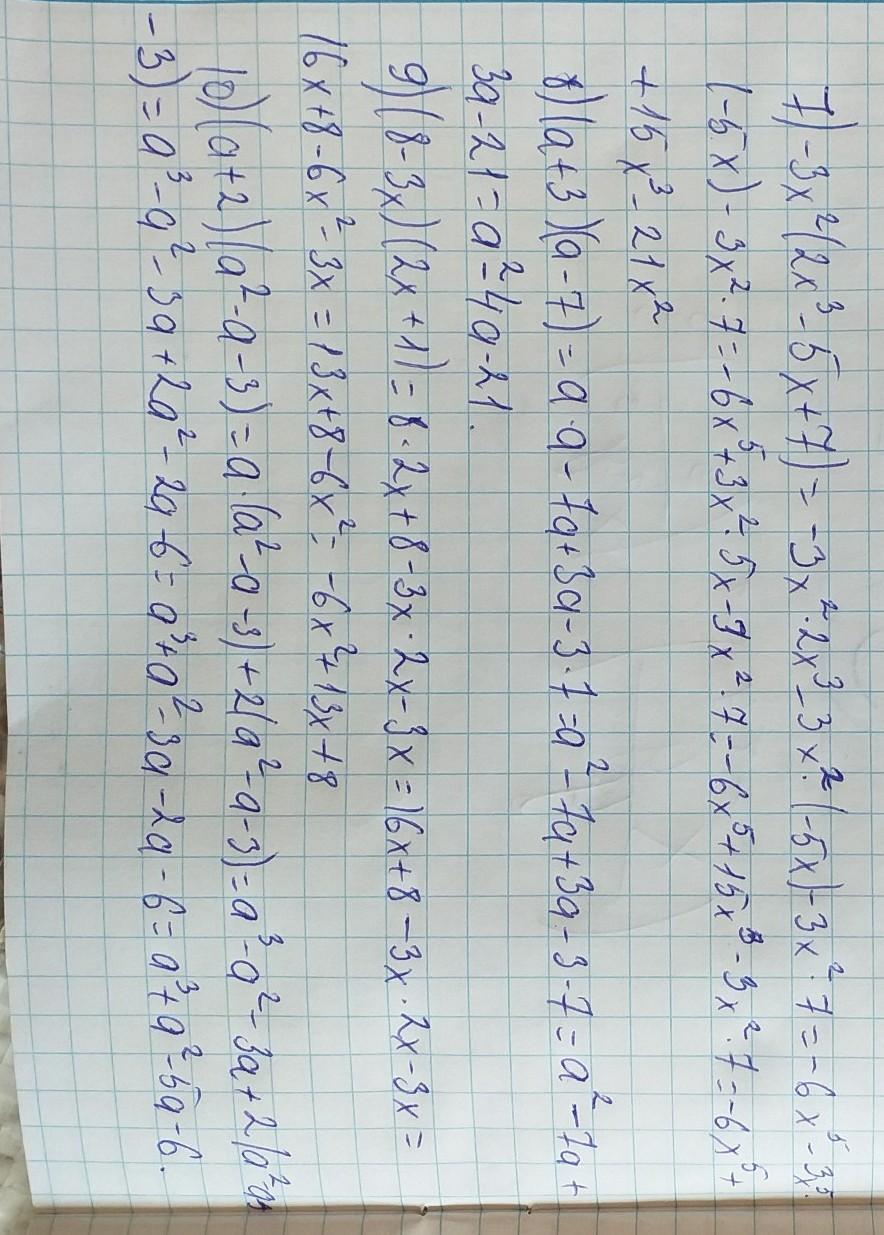 7) -3x²(2x³-5x+7) = -3x²·2x³-3x²·(-5x)-3x²·7=-6x⁵-3x²·
(-5x)-3x²·7=-6x⁵+3x²·5x-3x²·7=-6x⁵+15x³-3x²·7=-6x⁵+
+15x³-21x²
8)(a+3)(a-7)=a·a-7a+3a-3·7=a²-7a+3a-3·7=a²-7a+
3a-21=a²-4a-21.
9)(8-3x)(2x+1)=8·2x+8-3x·2x-3x=16x+8-3x·2x-3x=
16x+8-6x²-3x=13x+8-6x²=-6x²+13x+8
10)(a+2)(a²-a-3)=a·(a²-a-3)+2(a²-a-3)=a³-a²-3a+2(a²-a
-3)=a³-a²-3a+2a²-2a-6=a³+a²-3a-2a-6=a³+a²-5a-6.